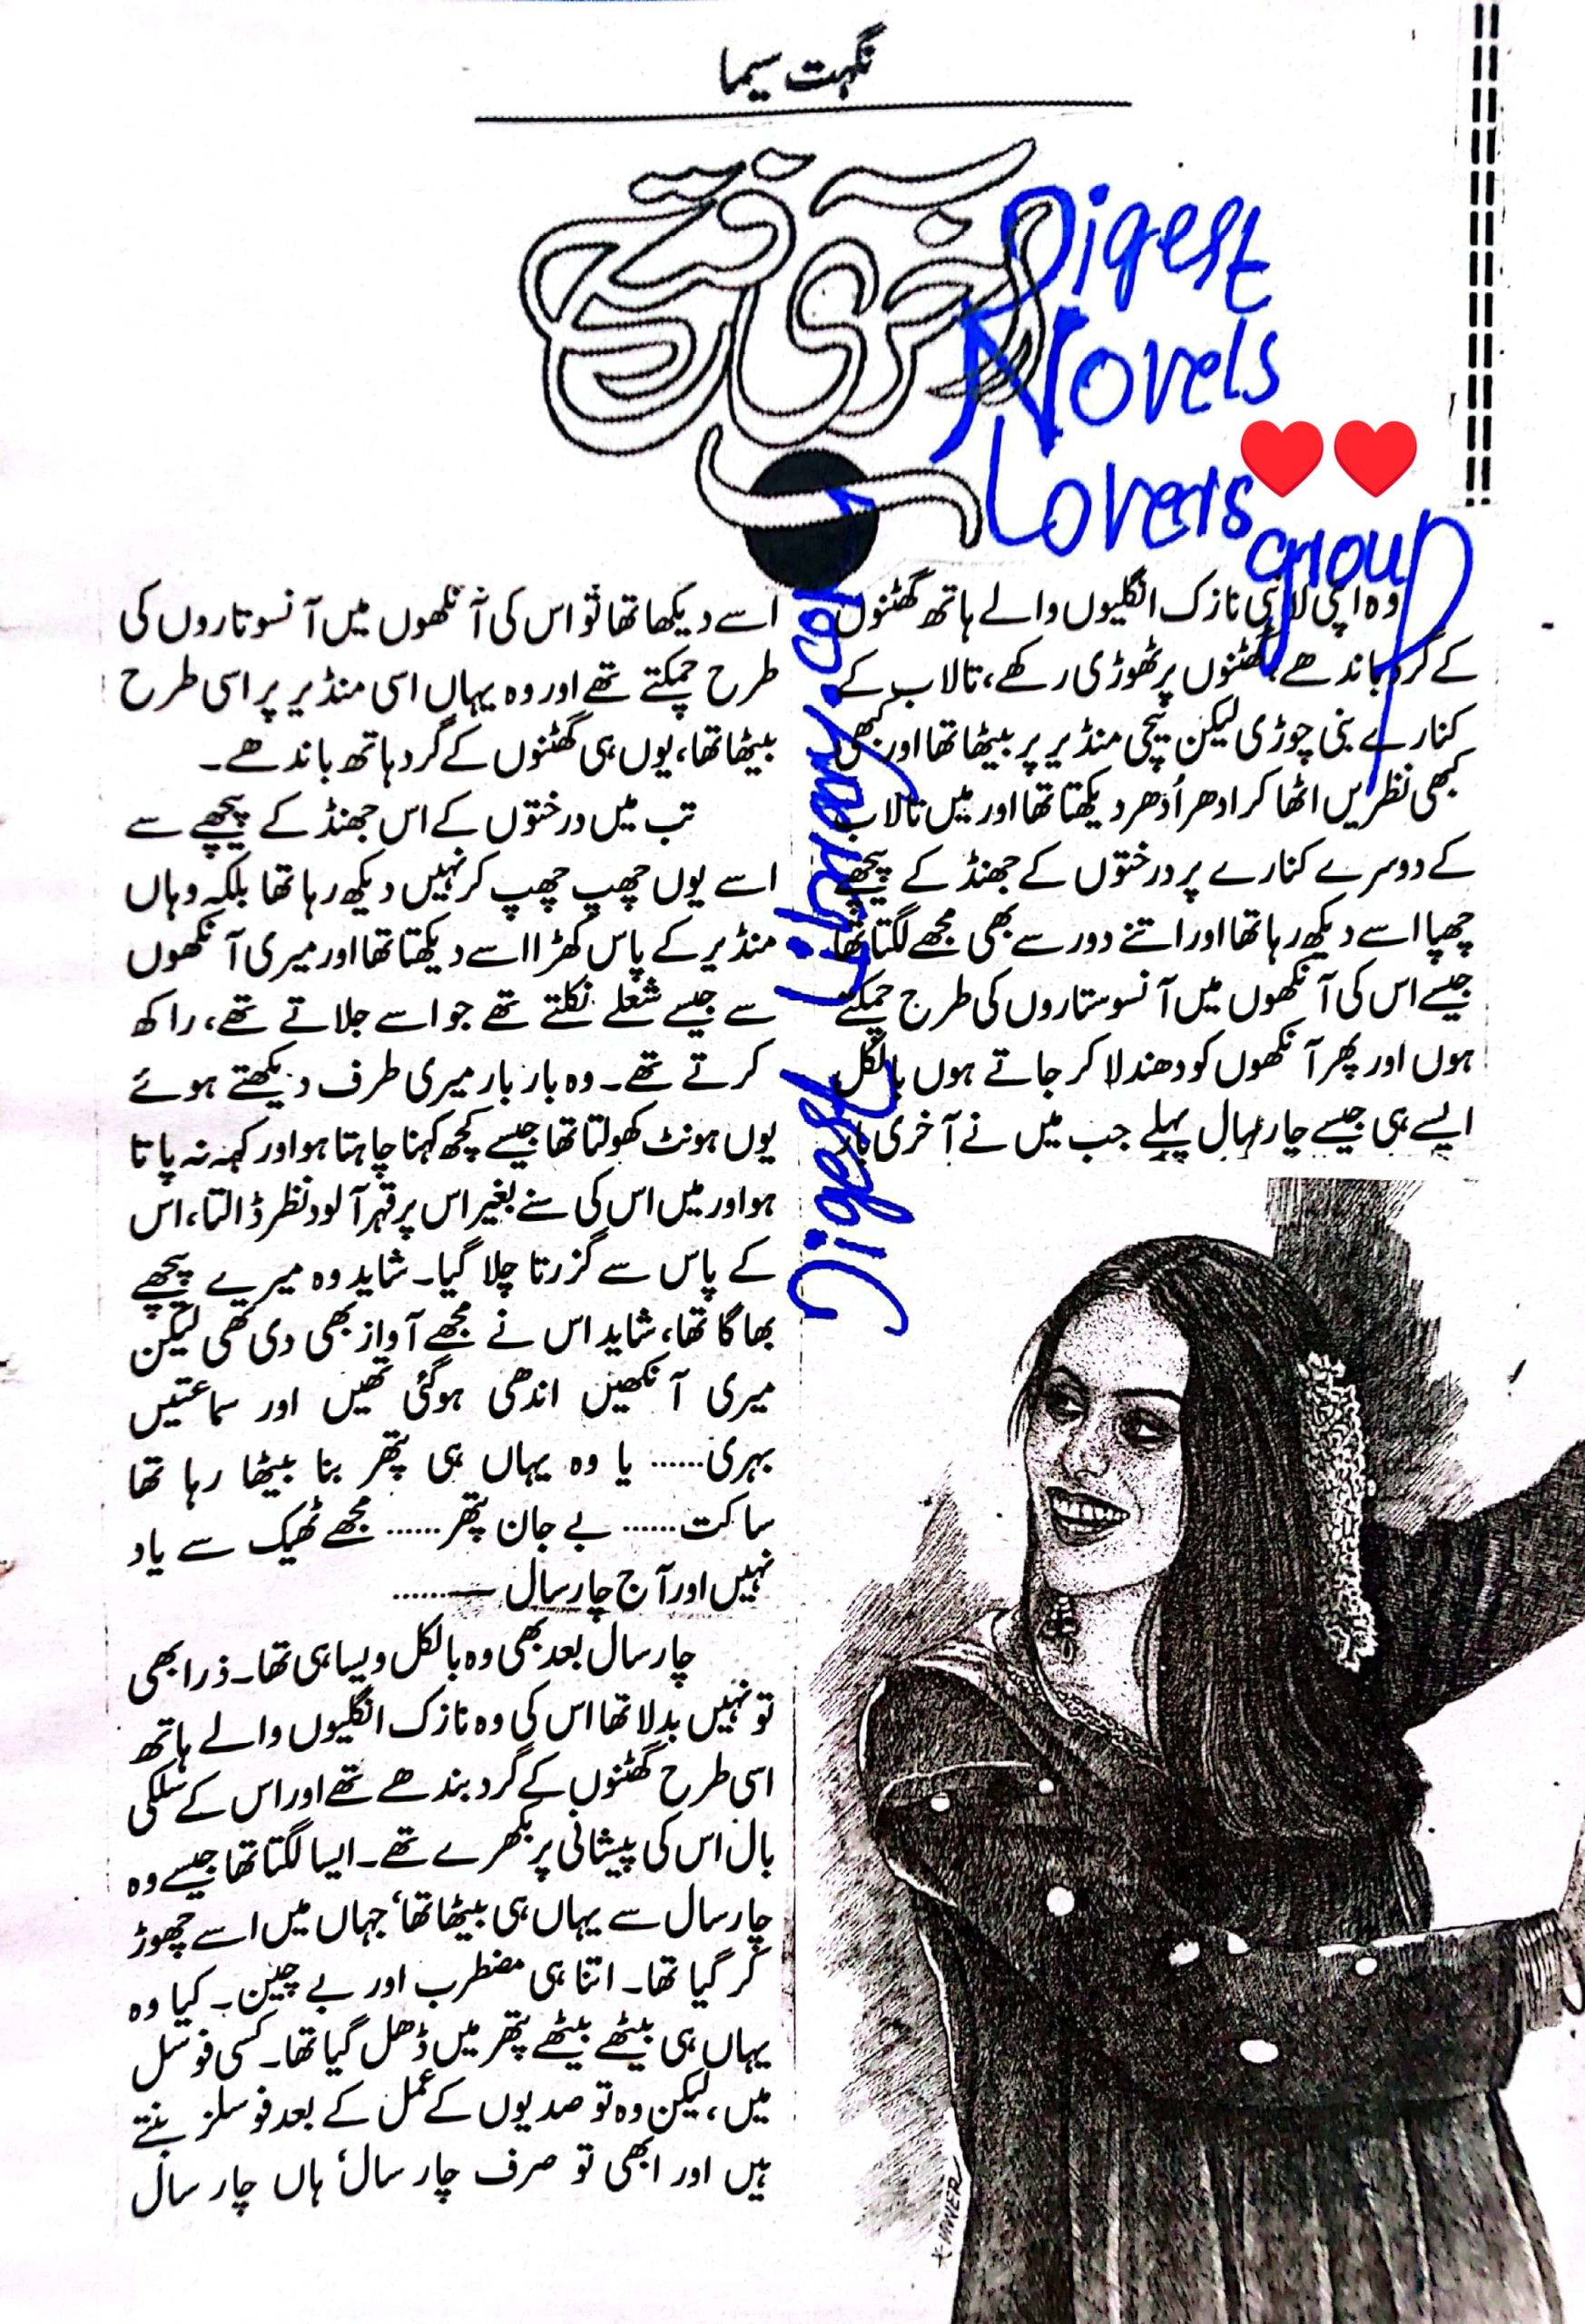 نگہت سیما
آخری فتح
Digest
Novels
Lovers
group
وہ اپنی لانبی نازک انگلیوں والے ہاتھ گھٹنوں
کے گرد باندھے، گھٹنوں پر ٹھوڑی رکھے، تالاب کے
کنارے بنی چوڑی لیکن نیچی منڈیر پر بیٹھا تھا اور کبھی
کبھی نظریں اٹھا کر ادھر اُدھر دیکھتا تھا اور میں تالاب
کے دوسرے کنارے پر درختوں کے جھنڈ کے پیچھے
چھپا اسے دیکھ رہا تھا اور اتنے دور سے بھی مجھے لگتا تھا
جیسے اس کی آنکھوں میں آنسو ستاروں کی طرح چمکتے
ہوں اور پھر آنکھوں کو دھندلا کر جاتے ہوں بالکل
ایسے ہی جیسے چار سال پہلے جب میں نے آخری بار
اسے دیکھا تھا تو اس کی آنکھوں میں آنسو تاروں کی
طرح چمکتے تھے اور وہ یہاں اسی منڈیر پر اسی طرح
بیٹھا تھا، یوں ہی گھٹنوں کے گرد ہاتھ باندھے۔
تب میں درختوں کے اس جھنڈ کے پیچھے سے
اسے یوں چھپ چھپ کر نہیں دیکھ رہا تھا بلکہ وہاں
منڈیر کے پاس کھڑا اسے دیکھتا تھا اور میری آنکھوں
سے جیسے شعلے نکلتے تھے جو اسے جلاتے تھے، راکھ
کرتے تھے۔ وہ بار بار میری طرف دیکھتے ہوئے
یوں ہونٹ کھولتا تھا جیسے کچھ کہنا چاہتا ہو اور کہہ نہ پاتا
ہو اور میں اس کی سنے بغیر اس پر قہر آلود نظر ڈالتا، اس
کے پاس سے گزرتا چلا گیا۔ شاید وہ میرے پیچھے
بھاگا تھا، شاید اس نے مجھے آواز بھی دی تھی لیکن
میری آنکھیں اندھی ہوگئی تھیں اور سماعتیں
بہری...... یا وہ یہاں ہی پتھر بنا بیٹھا رہا تھا
ساکت...... بے جان پتھر...... مجھے ٹھیک سے یاد
نہیں اور آج چار سال —......
چار سال بعد بھی وہ بالکل ویسا ہی تھا۔ ذرا بھی
تو نہیں بدلا تھا اس کی وہ نازک انگلیوں والے ہاتھ
اسی طرح گھٹنوں کے گرد بندھے تھے اور اس کے سلکی
بال اس کی پیشانی پر بکھرے تھے۔ ایسا لگتا تھا جیسے وہ
چار سال سے یہاں ہی بیٹھا تھا، جہاں میں اسے چھوڑ
کر گیا تھا۔ اتنا ہی مضطرب اور بے چین۔ کیا وہ
یہاں ہی بیٹھے بیٹھے پتھر میں ڈھل گیا تھا۔ کسی فوسل
میں، لیکن وہ تو صدیوں کے عمل کے بعد فوسلز بنتے
ہیں اور ابھی تو صرف چار سال، ہاں چار سال
Digest Library.com